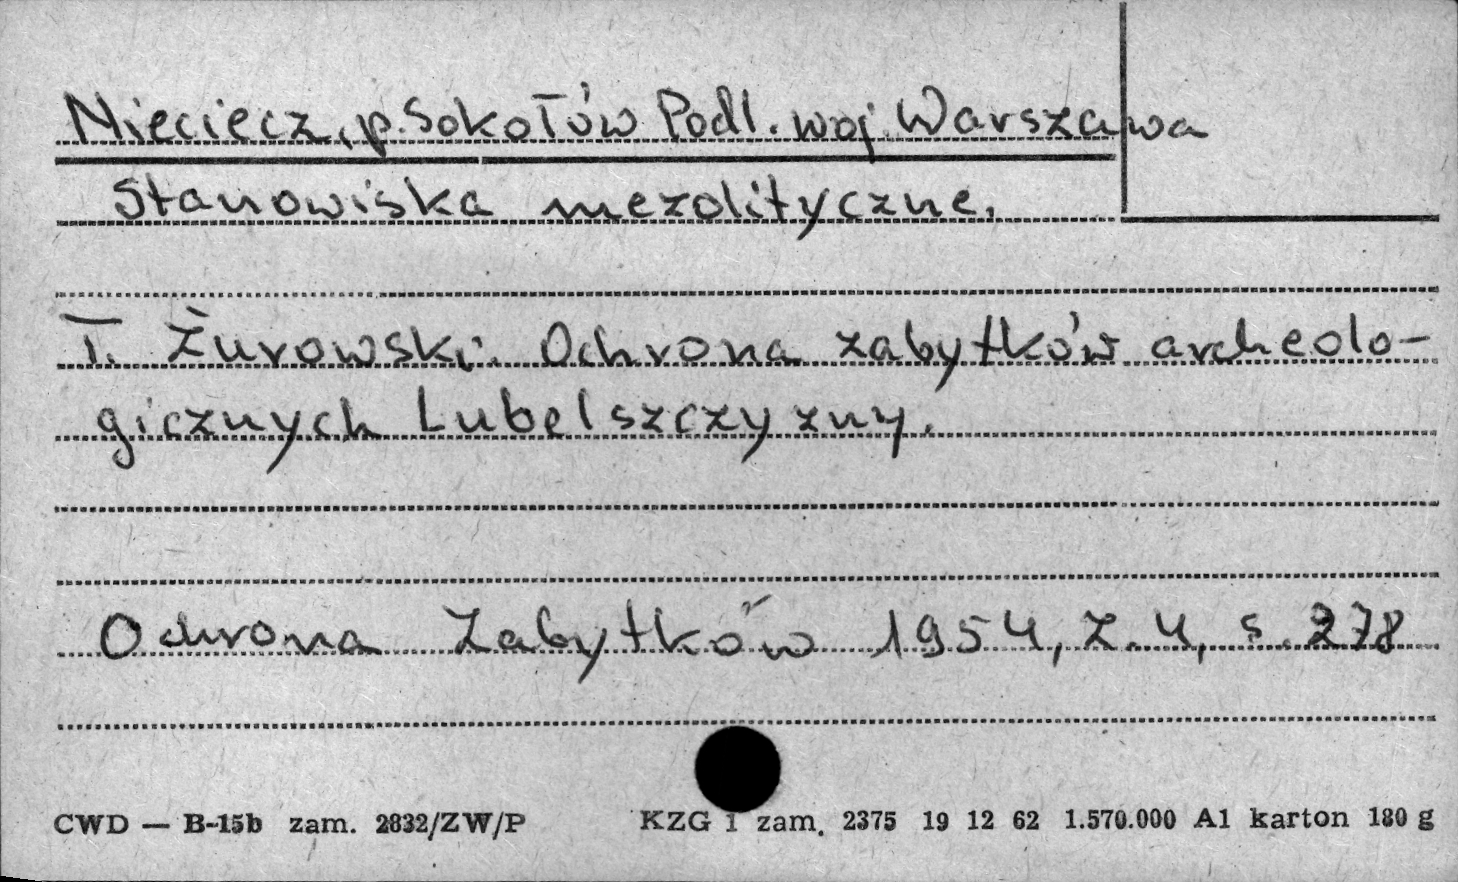 Nieciecz, p. Sokołów Podl. woj. Warszawa
Stanowiska mezolityczne.
T. Żurowski. Ochrona zabytków archeolo-
gicznych Lubelszczyzny.
Ochrona Zabytków 1954, z. 4, s. 278
CWD — B-15b zam. 2832/ZW/P KZG 1 zam. 2375 19 12 62 1.570.000 A1 karton 180 g